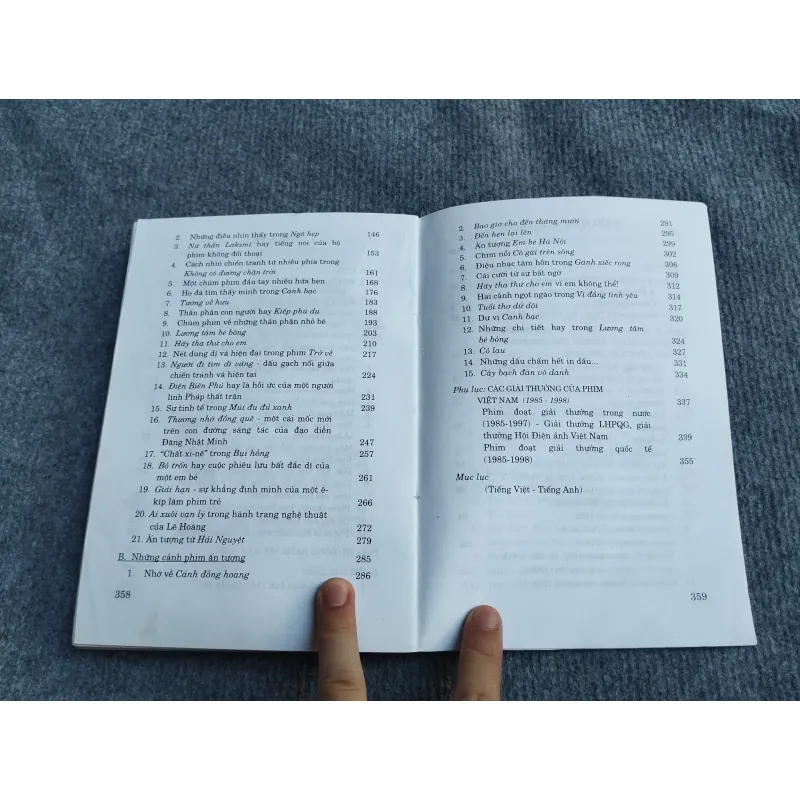 2. Những điều nhìn thấy trong Ngõ hẹp 146
3. Nữ thần Laksmi hay tiếng nói của bộ
phim không đối thoại 153
4. Cách nhìn chiến tranh từ nhiều phía trong
Không có đường chân trời 161
5. Một chùm phim đầu tay nhiều hứa hẹn 168
6. Họ đã tìm thấy mình trong Canh bạc 176
7. Tướng về hưu 183
8. Thân phận con người hay Kiếp phù du 188
9. Chùm phim về những thân phận nhỏ bé 193
10. Lương tâm bé bỏng 203
11. Hãy tha thứ cho em 210
12. Nét dung dị và hiện đại trong phim Trở về 217
13. Người đi tìm dĩ vãng - dấu gạch nối giữa
chiến tranh và hiện tại 224
14. Điện Biên Phủ hay là hồi ức của một người
lính Pháp thất trận 231
15. Sự tinh tế trong Mùi đu đủ xanh 239
16. Thương nhớ đồng quê - một cái mốc mới
trên con đường sáng tác của đạo diễn
Đặng Nhật Minh 247
17. "Chất xi-nê" trong Bụi hồng 257
18. Bỏ trốn hay cuộc phiêu lưu bất đắc dĩ của
một em bé 261
19. Giải hạn - sự khẳng định mình của một ê-
kíp làm phim trẻ 266
20. Ai xuôi vạn lý trong hành trang nghệ thuật
của Lê Hoàng 272
21. Ấn tượng từ Hải Nguyệt 279
B. Những cảnh phim ấn tượng 285
1. Nhớ về Cánh đồng hoang 286
358
2. Bao giờ cho đến tháng mười 291
3. Đến hẹn lại lên 295
4. Ấn tượng Em bé Hà Nội 299
5. Chìm nổi Cô gái trên sông 302
6. Điệu nhạc tâm hồn trong Gánh xiếc rong 306
7. Cái cười từ sự bất ngờ 309
8. Hãy tha thứ cho em vì em không thể! 312
9. Hai cảnh ngọt ngào trong Vị đắng tình yêu 314
10. Tuổi thơ dữ dội 317
11. Dư vị Canh bạc 320
12. Những chi tiết hay trong Lương tâm
bé bỏng 324
13. Cỏ lau 327
14. Những dấu chấm hết in dấu... 331
15. Cây bạch đàn vô danh 334
Phụ lục: CÁC GIẢI THƯỞNG CỦA PHIM
VIỆT NAM (1985 - 1998) 337
Phim đoạt giải thưởng trong nước
(1985-1997) - Giải thưởng LHPQG, giải
thưởng Hội Điện ảnh Việt Nam 339
Phim đoạt giải thưởng quốc tế
(1985-1998) 355
Mục lục
(Tiếng Việt - Tiếng Anh)
359